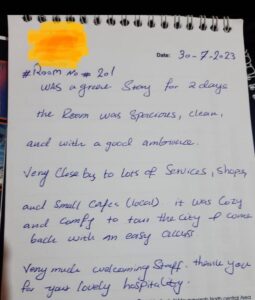 Date: 30-7-2023
#Room No # 201
was a great stay for 2 days
the Room was Spacious, clean,
and with a good ambiance.
Very close by to lots of Services, shops,
and small cafes (local) it was cozy
and comfy to tour the city & come
back with an easy access.
Very much welcoming staff. thank you
for your lovely hospitality.